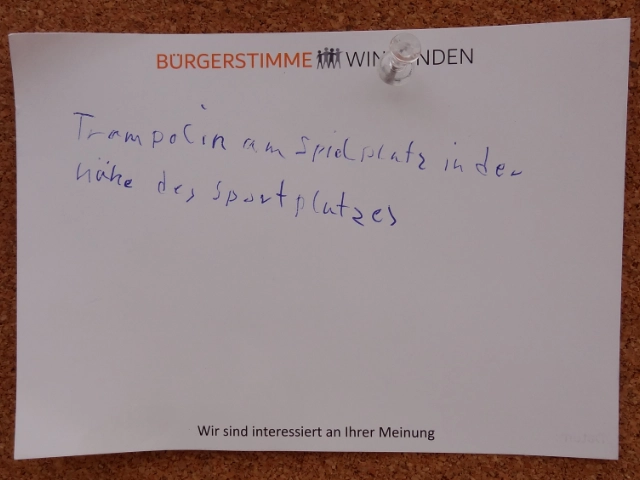 BÜRGERSTIMME
Trampolin am Spielplatz in der
Nähe des Sportplatzes
Wir sind interessiert an Ihrer Meinung